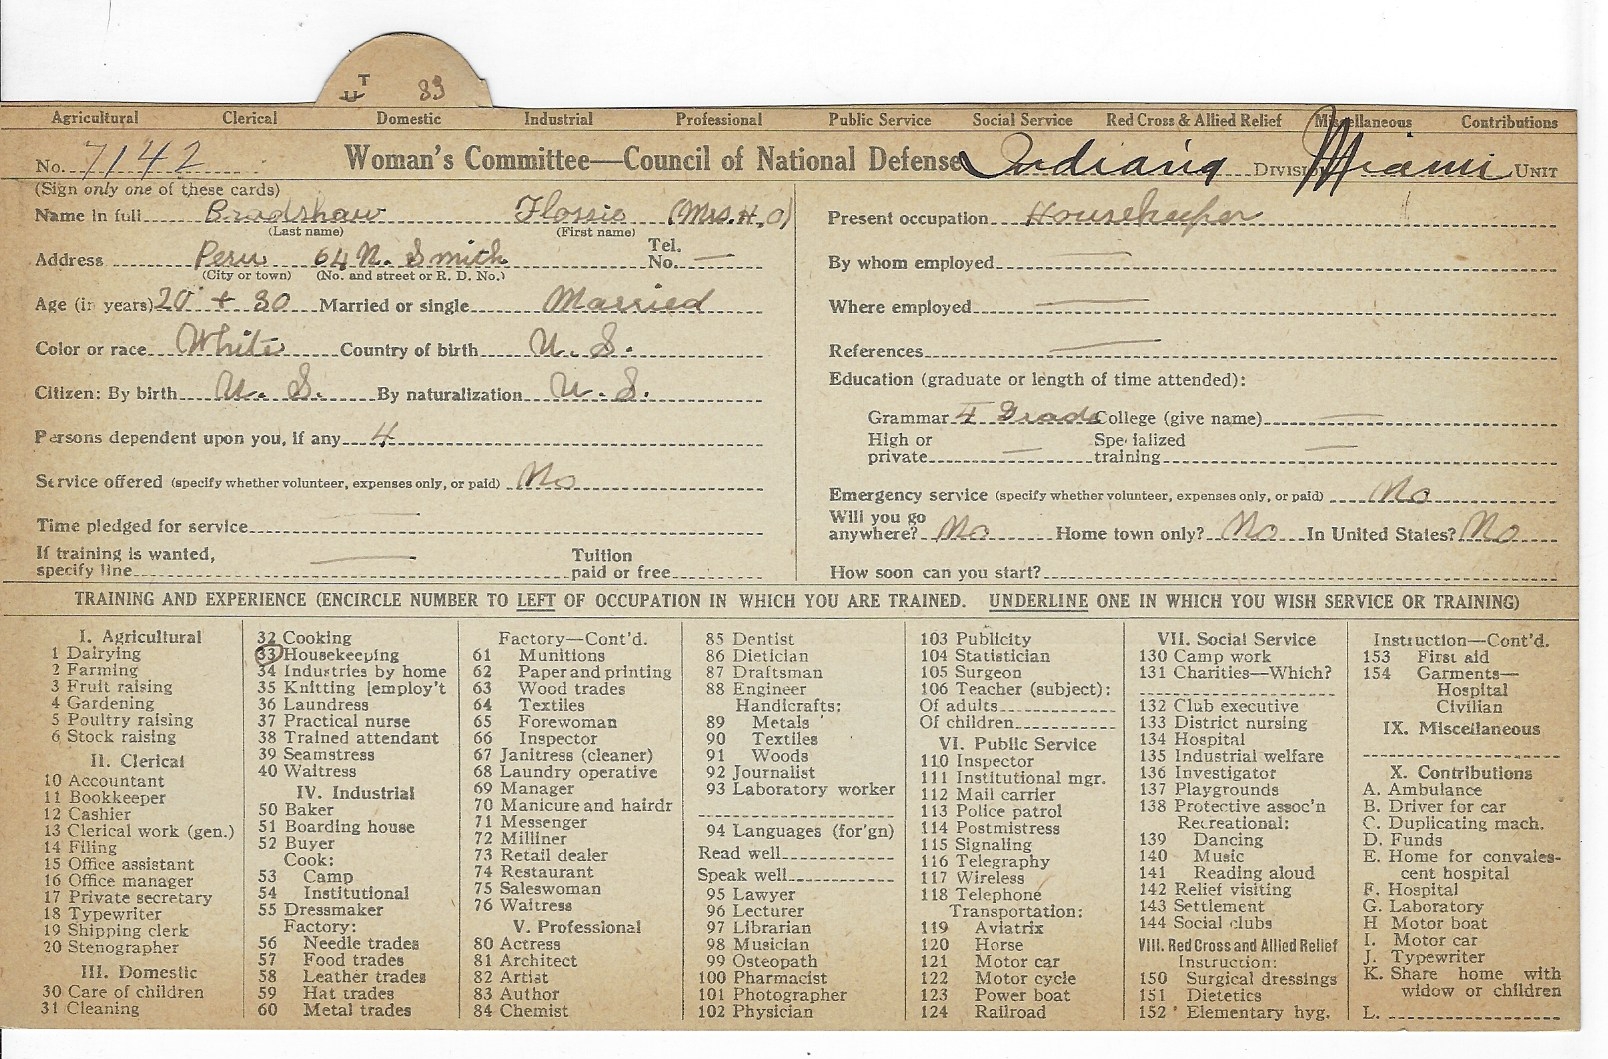 T
U 33
Agricultural Clerical Domestic Industrial Professional Public Service Social Service Red Cross & Allied Relief Miscellaneous Contributions
No. 7142 Woman's Committee—Council of National Defense Indiana Division Miami Unit
(Sign only one of these cards)
Name in full Bradshaw Flossie (Mrs. H. O)
(Last name) (First name)
Address Peru 64 N. Smith Tel. No. —
(City or town) (No. and street or R. D. No.)
Age (in years) 20 + 30 Married or single Married
Color or race White Country of birth U. S.
Citizen: By birth U. S. By naturalization U. S.
Persons dependent upon you, if any 4
Service offered (specify whether volunteer, expenses only, or paid) No
Time pledged for service —
If training is wanted, specify line — Tuition paid or free
Present occupation Housekeeper
By whom employed —
Where employed —
References —
Education (graduate or length of time attended):
Grammar 4 Grade College (give name) —
High or private — Specialized training —
Emergency service (specify whether volunteer, expenses only, or paid) No
Will you go anywhere? No Home town only? No In United States? No
How soon can you start?
TRAINING AND EXPERIENCE (ENCIRCLE NUMBER TO LEFT OF OCCUPATION IN WHICH YOU ARE TRAINED. UNDERLINE ONE IN WHICH YOU WISH SERVICE OR TRAINING)
I. Agricultural
1 Dairying
2 Farming
3 Fruit raising
4 Gardening
5 Poultry raising
6 Stock raising
II. Clerical
10 Accountant
11 Bookkeeper
12 Cashier
13 Clerical work (gen.)
14 Filing
15 Office assistant
16 Office manager
17 Private secretary
18 Typewriter
19 Shipping clerk
20 Stenographer
III. Domestic
30 Care of children
31 Cleaning
32 Cooking
33 Housekeeping
34 Industries by home
35 Knitting [employ't
36 Laundress
37 Practical nurse
38 Trained attendant
39 Seamstress
40 Waitress
IV. Industrial
50 Baker
51 Boarding house
52 Buyer
Cook:
53 Camp
54 Institutional
55 Dressmaker
Factory:
56 Needle trades
57 Food trades
58 Leather trades
59 Hat trades
60 Metal trades
Factory—Cont'd.
61 Munitions
62 Paper and printing
63 Wood trades
64 Textiles
65 Forewoman
66 Inspector
67 Janitress (cleaner)
68 Laundry operative
69 Manager
70 Manicure and hairdr
71 Messenger
72 Milliner
73 Retail dealer
74 Restaurant
75 Saleswoman
76 Waitress
V. Professional
80 Actress
81 Architect
82 Artist
83 Author
84 Chemist
85 Dentist
86 Dietician
87 Draftsman
88 Engineer
Handicrafts:
89 Metals
90 Textiles
91 Woods
92 Journalist
93 Laboratory worker
94 Languages (for'gn)
Read well
Speak well
95 Lawyer
96 Lecturer
97 Librarian
98 Musician
99 Osteopath
100 Pharmacist
101 Photographer
102 Physician
103 Publicity
104 Statistician
105 Surgeon
106 Teacher (subject):
Of adults
Of children
VI. Public Service
110 Inspector
111 Institutional mgr.
112 Mail carrier
113 Police patrol
114 Postmistress
115 Signaling
116 Telegraphy
117 Wireless
118 Telephone
Transportation:
119 Aviatrix
120 Horse
121 Motor car
122 Motor cycle
123 Power boat
124 Railroad
VII. Social Service
130 Camp work
131 Charities—Which?
132 Club executive
133 District nursing
134 Hospital
135 Industrial welfare
136 Investigator
137 Playgrounds
138 Protective assoc'n
Recreational:
139 Dancing
140 Music
141 Reading aloud
142 Relief visiting
143 Settlement
144 Social clubs
VIII. Red Cross and Allied Relief
Instruction:
150 Surgical dressings
151 Dietetics
152 Elementary hyg.
Instruction—Cont'd.
153 First aid
154 Garments—
Hospital
Civilian
IX. Miscellaneous
X. Contributions
A. Ambulance
B. Driver for car
C. Duplicating mach.
D. Funds
E. Home for convales-
cent hospital
F. Hospital
G. Laboratory
H Motor boat
I. Motor car
J. Typewriter
K. Share home with
widow or children
L.